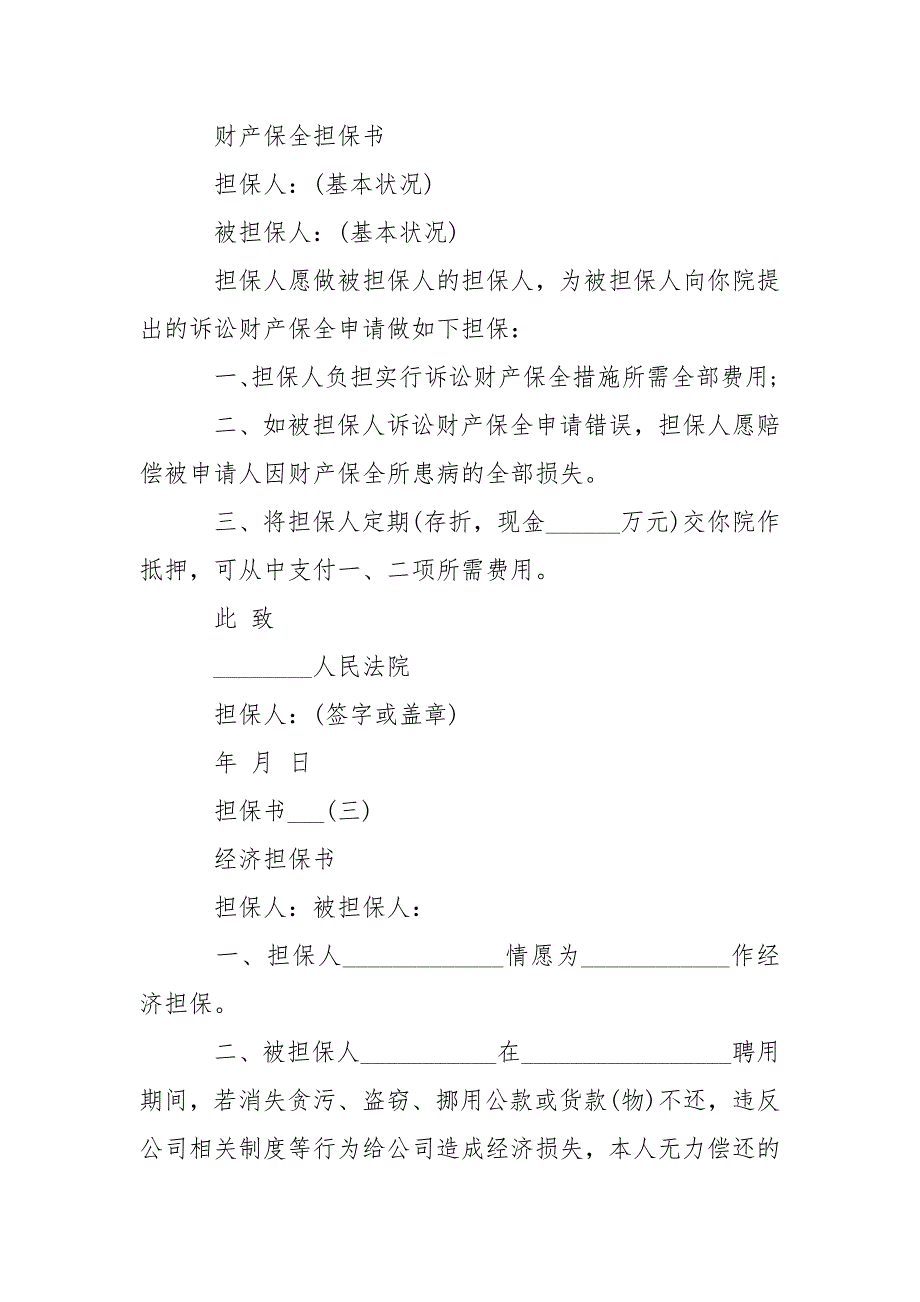 财产保全担保书
担保人：(基本状况)
被担保人：(基本状况)
担保人愿做被担保人的担保人，为被担保人向你院提
出的诉讼财产保全申请做如下担保：
一、担保人负担实行诉讼财产保全措施所需全部费用;
二、如被担保人诉讼财产保全申请错误，担保人愿赔
偿被申请人因财产保全所患病的全部损失。
三、将担保人定期(存折，现金______万元)交你院作
抵押，可从中支付一、二项所需费用。
此 致
________人民法院
担保人：(签字或盖章)
年 月 日
担保书___(三)
经济担保书
担保人：被担保人：
一、担保人_____________情愿为____________作经
济担保。
二、被担保人___________在_________________聘用
期间，若消失贪污、盗窃、挪用公款或货款(物)不还，违反
公司相关制度等行为给公司造成经济损失，本人无力偿还的